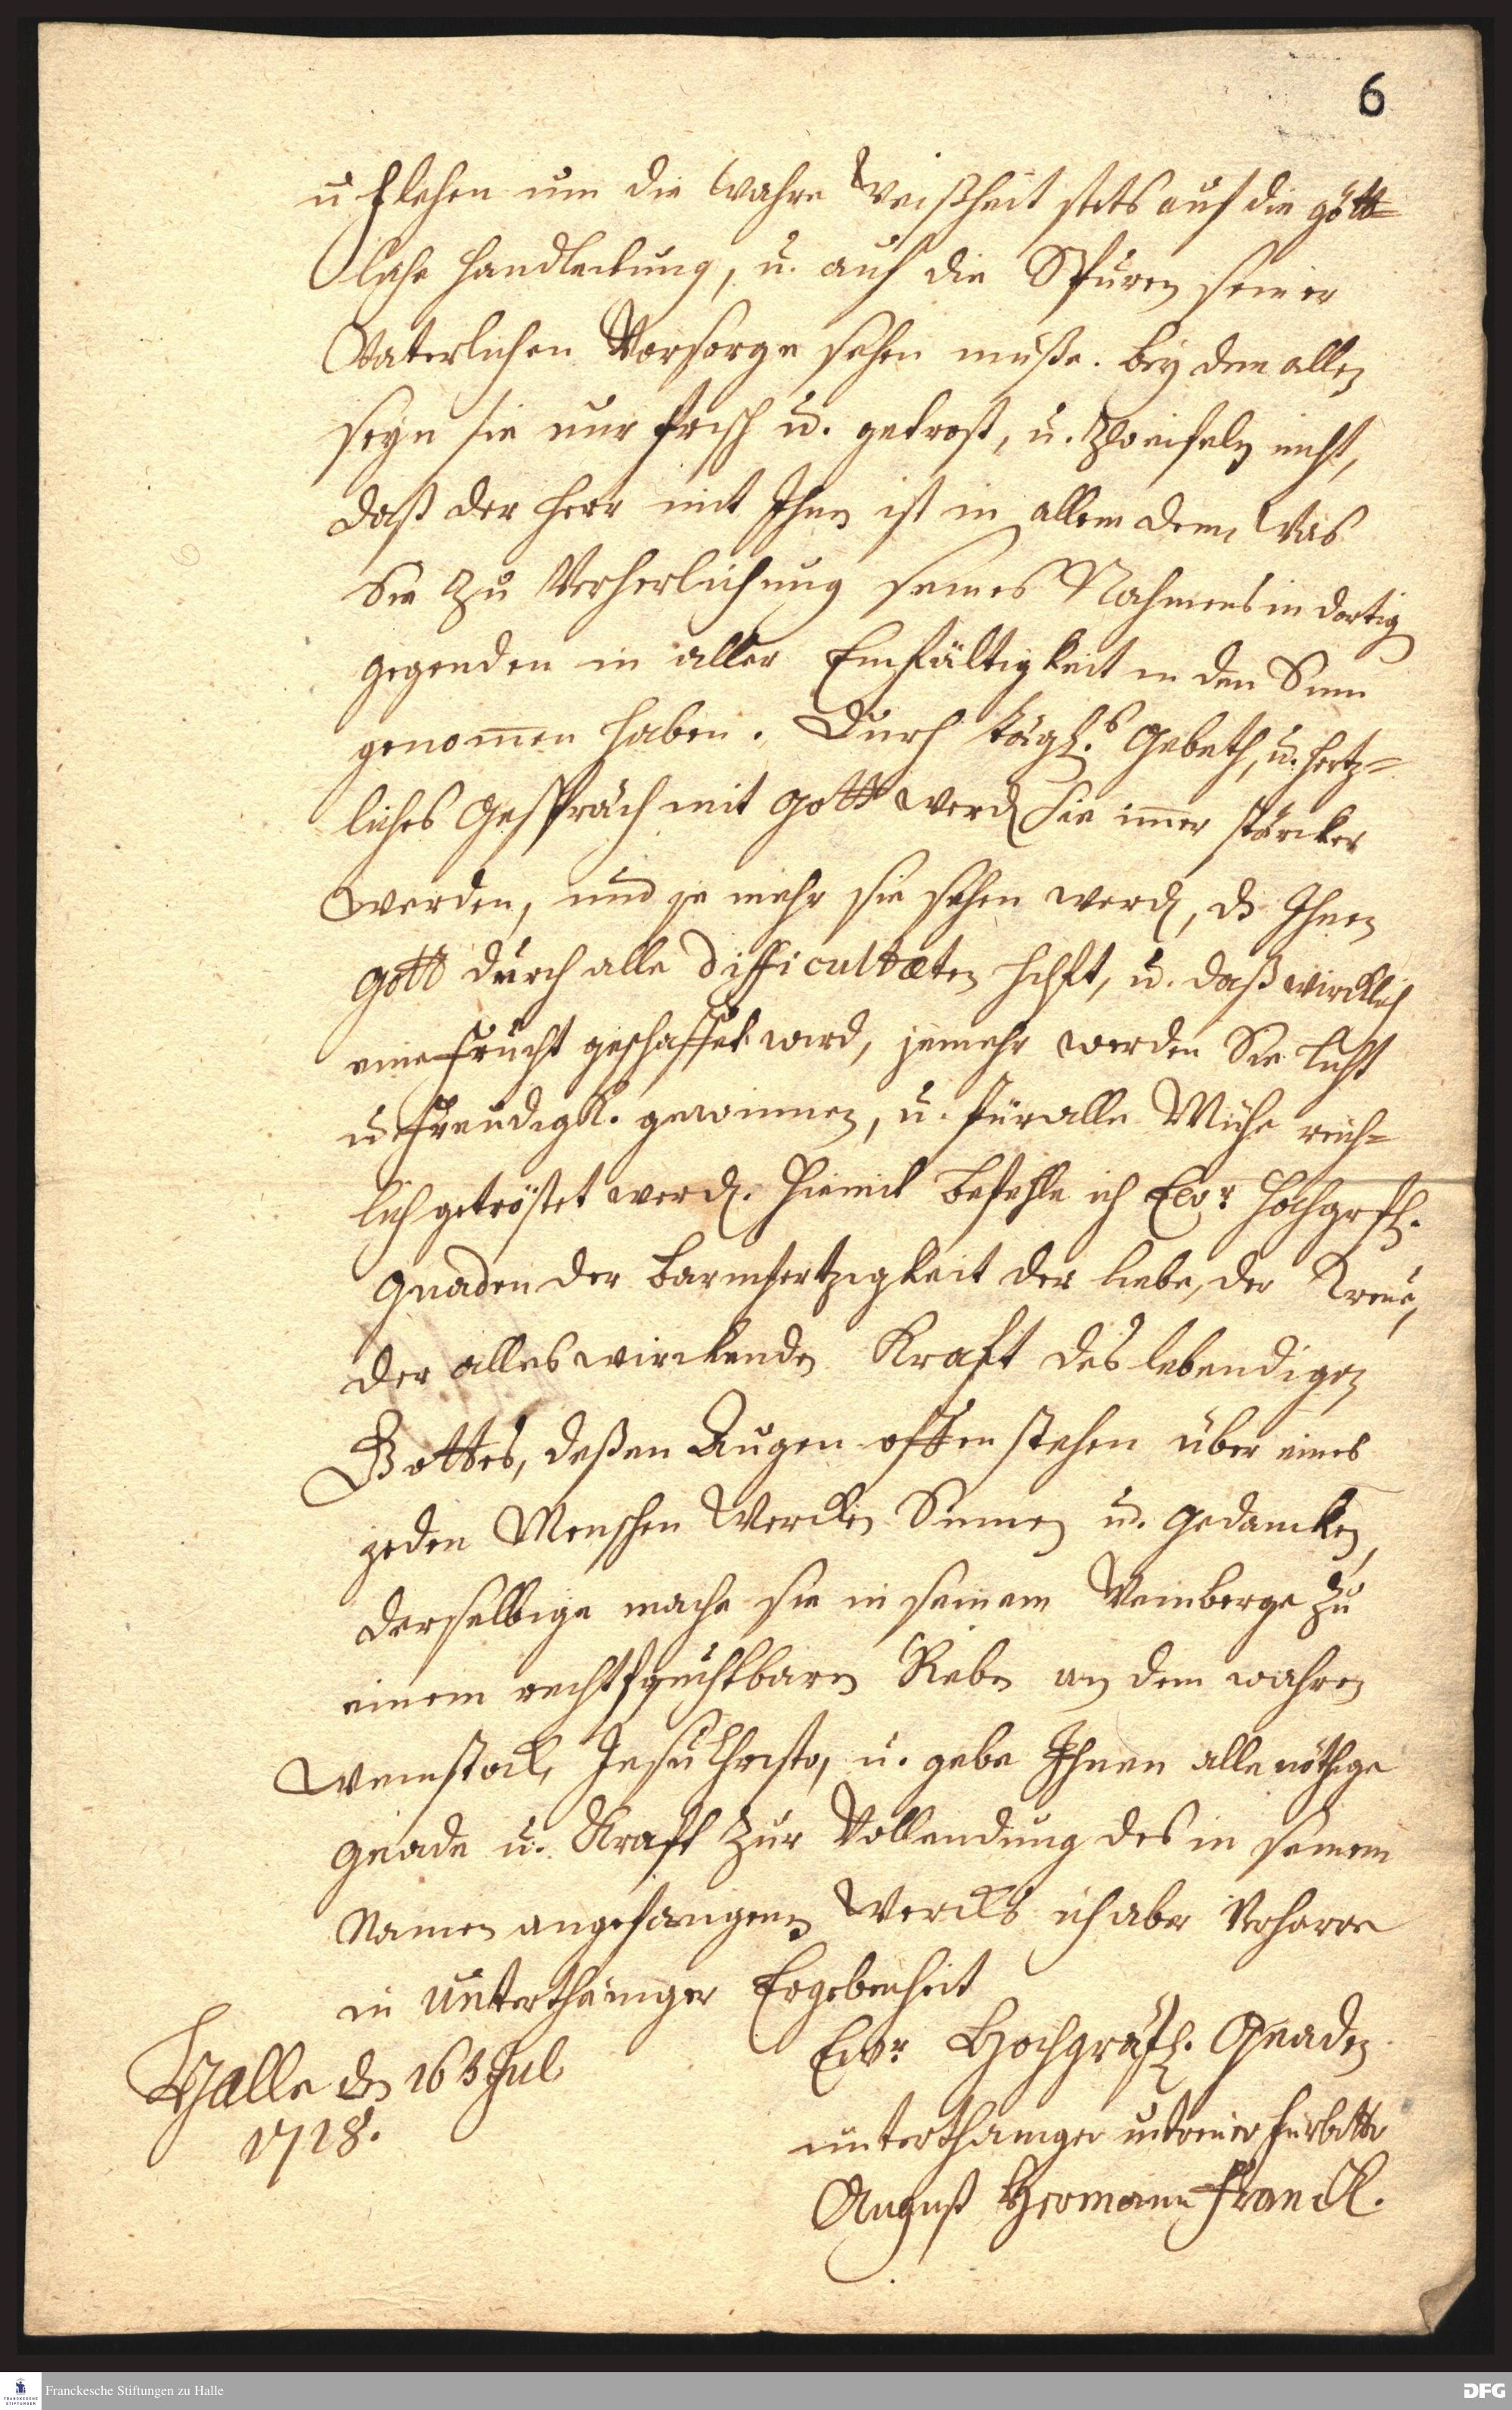 6
u flehen um die wahre Weißheit stets auf die gött-
liche Handleitung, u. auf die Spuren seiner
Vaterlichen Vorsorge sehen müße. bey dem allen
seyn sie nur frisch u. getrost, u. Zweifeln nicht,
daß der Herr mit Ihnen ist in allem dem, was
Sie zu Verherlichung seines Nahmens in dortig
gegenden in aller Einfältigkeit in den Sinn
genommen haben. Durch tägl.s Gebeth, u. hertz-
liches Gespräch mit Gott werd. Sie immer stärcker
werden, und je mehr sie sehen werd, dß Ihnen
Gott durch alle difficultæten hilfft, u. daß wircklich
eine Frucht geschaffet wird, jemehr werden Sie Lust
u Freudigk. gewinnen, u. für alle Mühe reich-
lich getröstet werd. Hiemit befehle ich Ewr Hochgrfl.
Gnaden der Barmhertzigkeit der Liebe, der Treue,
der alles wirckenden Kraft des lebendigen
Gottes, deßen Augen offen stehen über eines
jeden Menschen Wercken Sinnen u. Gedancken,
derselbige mache sie in seinem Weinberge zu
einem recht fruchtbaren Reben an dem wahren
Weinstock, Jesu Christo, u. gebe Ihnen alle nöthige
Gnade u. Kraft zur Vollendung des in seinem
Namen angefangenen Wercks ich aber Verharre
in unterthäniger Ergebenheit
Ewr Hochgräfl. Gnaden
Halle d. 16 Jul
1718.
unterthäniger u treuer Fürbitter
August Hermann Franck.
Franckesche Stiftungen zu Halle
DFG